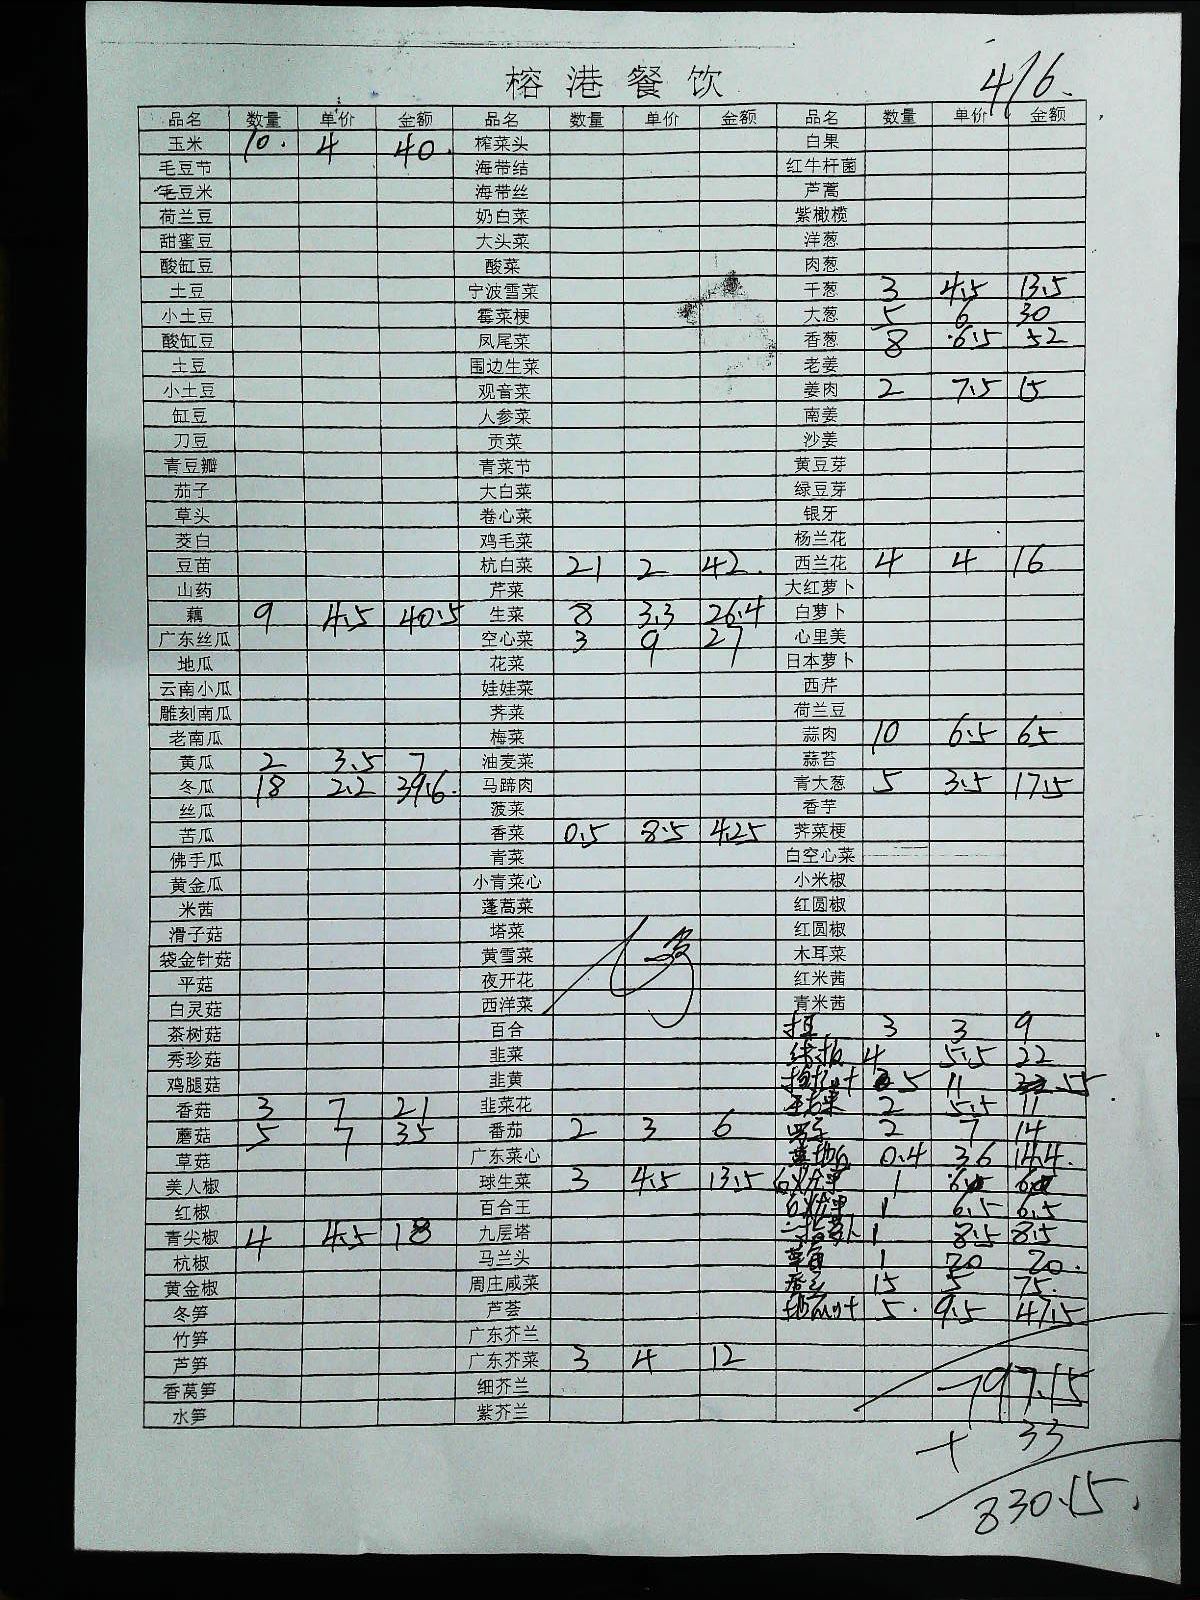 榕港餐饮
4/6.
品名 数量 单价 金额 品名 数量 单价 金额 品名 数量 单价 金额
玉米 10. 4 40. 榨菜头 白果
毛豆节 海带结 红牛杆菌
毛豆米 海带丝 芦蒿
荷兰豆 奶白菜 紫橄榄
甜蜜豆 大头菜 洋葱
酸缸豆 酸菜 肉葱
土豆 宁波雪菜 干葱 3 4.5 13.5
小土豆 霉菜梗 大葱 5 6 30
酸缸豆 凤尾菜 香葱 8 6.5 52
土豆 围边生菜 老姜
小土豆 观音菜 姜肉 2 7.5 15
缸豆 人参菜 南姜
刀豆 贡菜 沙姜
青豆瓣 青菜节 黄豆芽
茄子 大白菜 绿豆芽
草头 卷心菜 银牙
茭白 鸡毛菜 杨兰花
豆苗 杭白菜 21 2 42. 西兰花 4 4 16
山药 芹菜 大红萝卜
藕 9 4.5 40.5 生菜 8 3.3 26.4 白萝卜
广东丝瓜 空心菜 3 9 27 心里美
地瓜 花菜 日本萝卜
云南小瓜 娃娃菜 西芹
雕刻南瓜 荠菜 荷兰豆
老南瓜 梅菜 蒜肉 10 6.5 65
黄瓜 2 3.5 7 油麦菜 蒜苔
冬瓜 18 2.2 39.6. 马蹄肉 青大葱 5 3.5 17.5
丝瓜 菠菜 香芋
苦瓜 香菜 0.5 8.5 4.25 荠菜梗
佛手瓜 青菜 白空心菜
黄金瓜 小青菜心 小米椒
米茜 蓬蒿菜 红圆椒
滑子菇 塔菜 红圆椒
袋金针菇 黄雪菜 木耳菜
平菇 夜开花 红米茜
白灵菇 西洋菜 青米茜
茶树菇 百合 3 3 9
秀珍菇 韭菜 4 5.5 22
鸡腿菇 韭黄 5 11 55
香菇 3 7 21 韭菜花 2 5.5 11
蘑菇 5 7 35 番茄 2 3 6 2 7 14
草菇 广东菜心 0.4 36 14.4.
美人椒 球生菜 3 4.5 13.5 1
红椒 百合王 1 6.5 6.5
青尖椒 4 4.5 18 九层塔 1 8.5 8.5
杭椒 马兰头 1 20 20.
黄金椒 周庄咸菜 15 5 75.
冬笋 芦荟 5. 9.5 47.5
竹笋 广东芥兰
芦笋 广东芥菜 3 4 12
香莴笋 细芥兰 797.15
水笋 紫芥兰
+ 33
830.15.